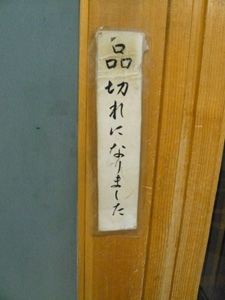 品切れになりました